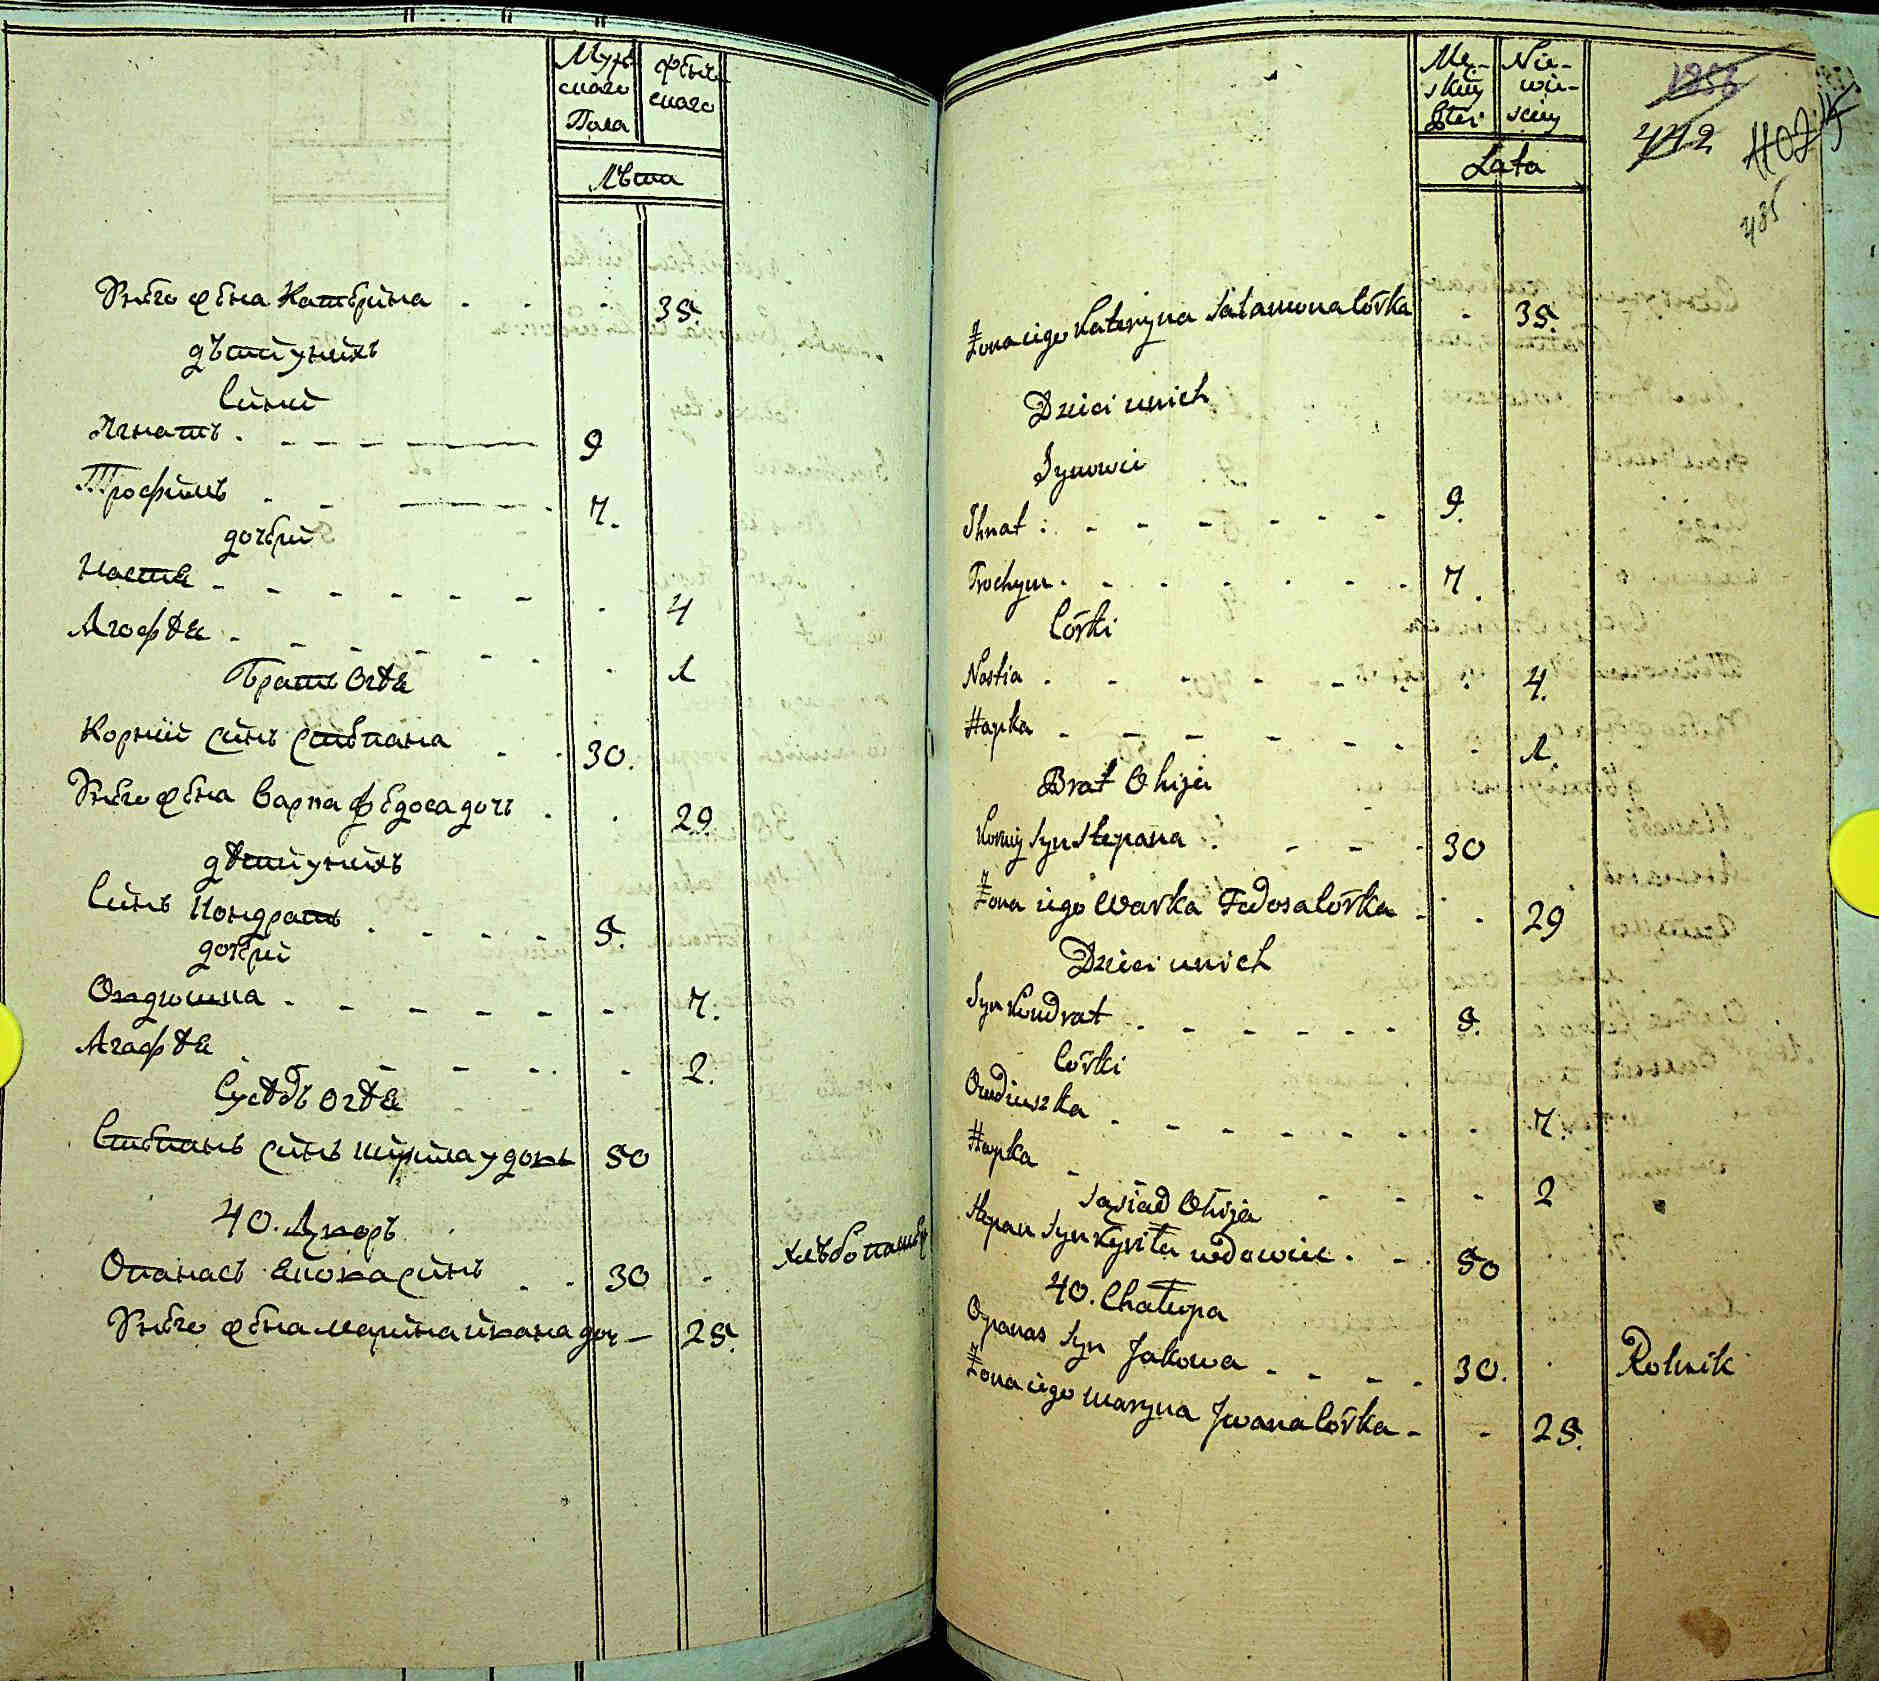 Мужскаго Пола
Женскаго
Лѣта
Унего жена Катерина - - - 35
дѣти унихъ
Сини
Игнатъ - - - 9
Трофимъ - - - 7.
дочери
Настя - - - 4
Агофѣя - - - 1
Братъ Огѣя
Корній синъ Степана - - 30.
Унего жена Варка Федоса дочь - - 29
дѣти унихъ
Синъ Кондратъ - - - 5.
дочери
Ондюшка - - - 7.
Агафѣя - - - 2.
Сусѣдъ Огѣя
Степанъ синъ Кирила удовъ 50
40. Дворъ
Опанасъ Якова синъ - - 30 - хлѣбопашецъ
Унего жена Марина Ивана доч — 25.
Męskiey Płci
Niewieściey
Lata
1856
442
402
435
Żona iego Kateryna Sałamona Córka - 35.
Dzieci unich
Synowie
Ihnat : - - - 9.
Trochym - - - 7.
Córki
Nastia - - - 4.
Hapka - - - 1.
Brat Ohija
Korniy Syn Stepana - - - 30
Żona iego Warka Fedosa Córka - - 29
Dzieci unich
Syn Kondrat - - - 5.
Córki
Ondiuszka - - - 7.
Hapka - - - 2
Sąsiad Ohija
Stepan Syn Kyriła wdowiec - - 50
40. Chałupa
Opanas Syn Jakowa - - - 30. Rolnik
Żona iego Maryna Jwana Córka - - 25.